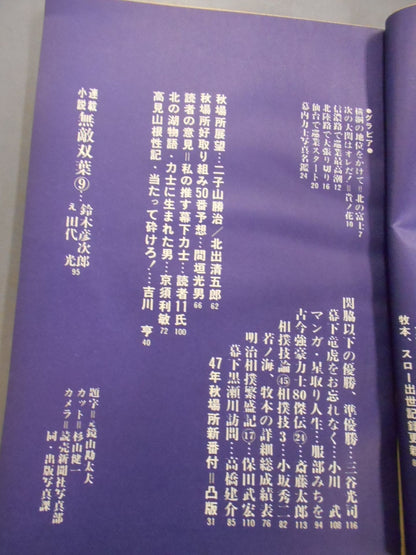 ●グラビア●
横綱の地位をかけて=北の富士 7
次の大関はオレだァ=貴ノ花 10
信濃路で巡業最高潮 12
北陸路で大張り切り 16
仙台で巡業スタート 20
幕内力士写真名鑑 24
関脇以下の優勝、準優勝…三谷光司 116
幕下竜虎をお忘れなく…小川 武 108
マンガ・星取り人生…服部みちを 94
古今強豪力士80傑伝㉔…斎藤太郎 113
相撲技論㊺相撲技3…小坂秀二 82
若ノ海、牧本の詳細総成績表 76
明治相撲繁盛記⑰…保田武宏 110
幕下黒瀬川訪問…高橋建介 85
47年秋場所新番付=凸版 31
秋場所展望…二子山勝治/北出清五郎 62
秋場所好取り組み50番予想…間垣光男 66
読者の意見=私の推す幕下力士…読者11氏 100
北の湖物語・力士に生まれた男…京須利敏 72
高見山根性記・当たって砕けろ!…吉川 亨 40
連載小説 無敵双葉⑨…鈴木彦次郎
え 田代 光 95
題字=元鏡山勘太夫
カット=杉山健一
カメラ=読売新聞社写真部
同・出版写真課
牧本、スロー出世記録